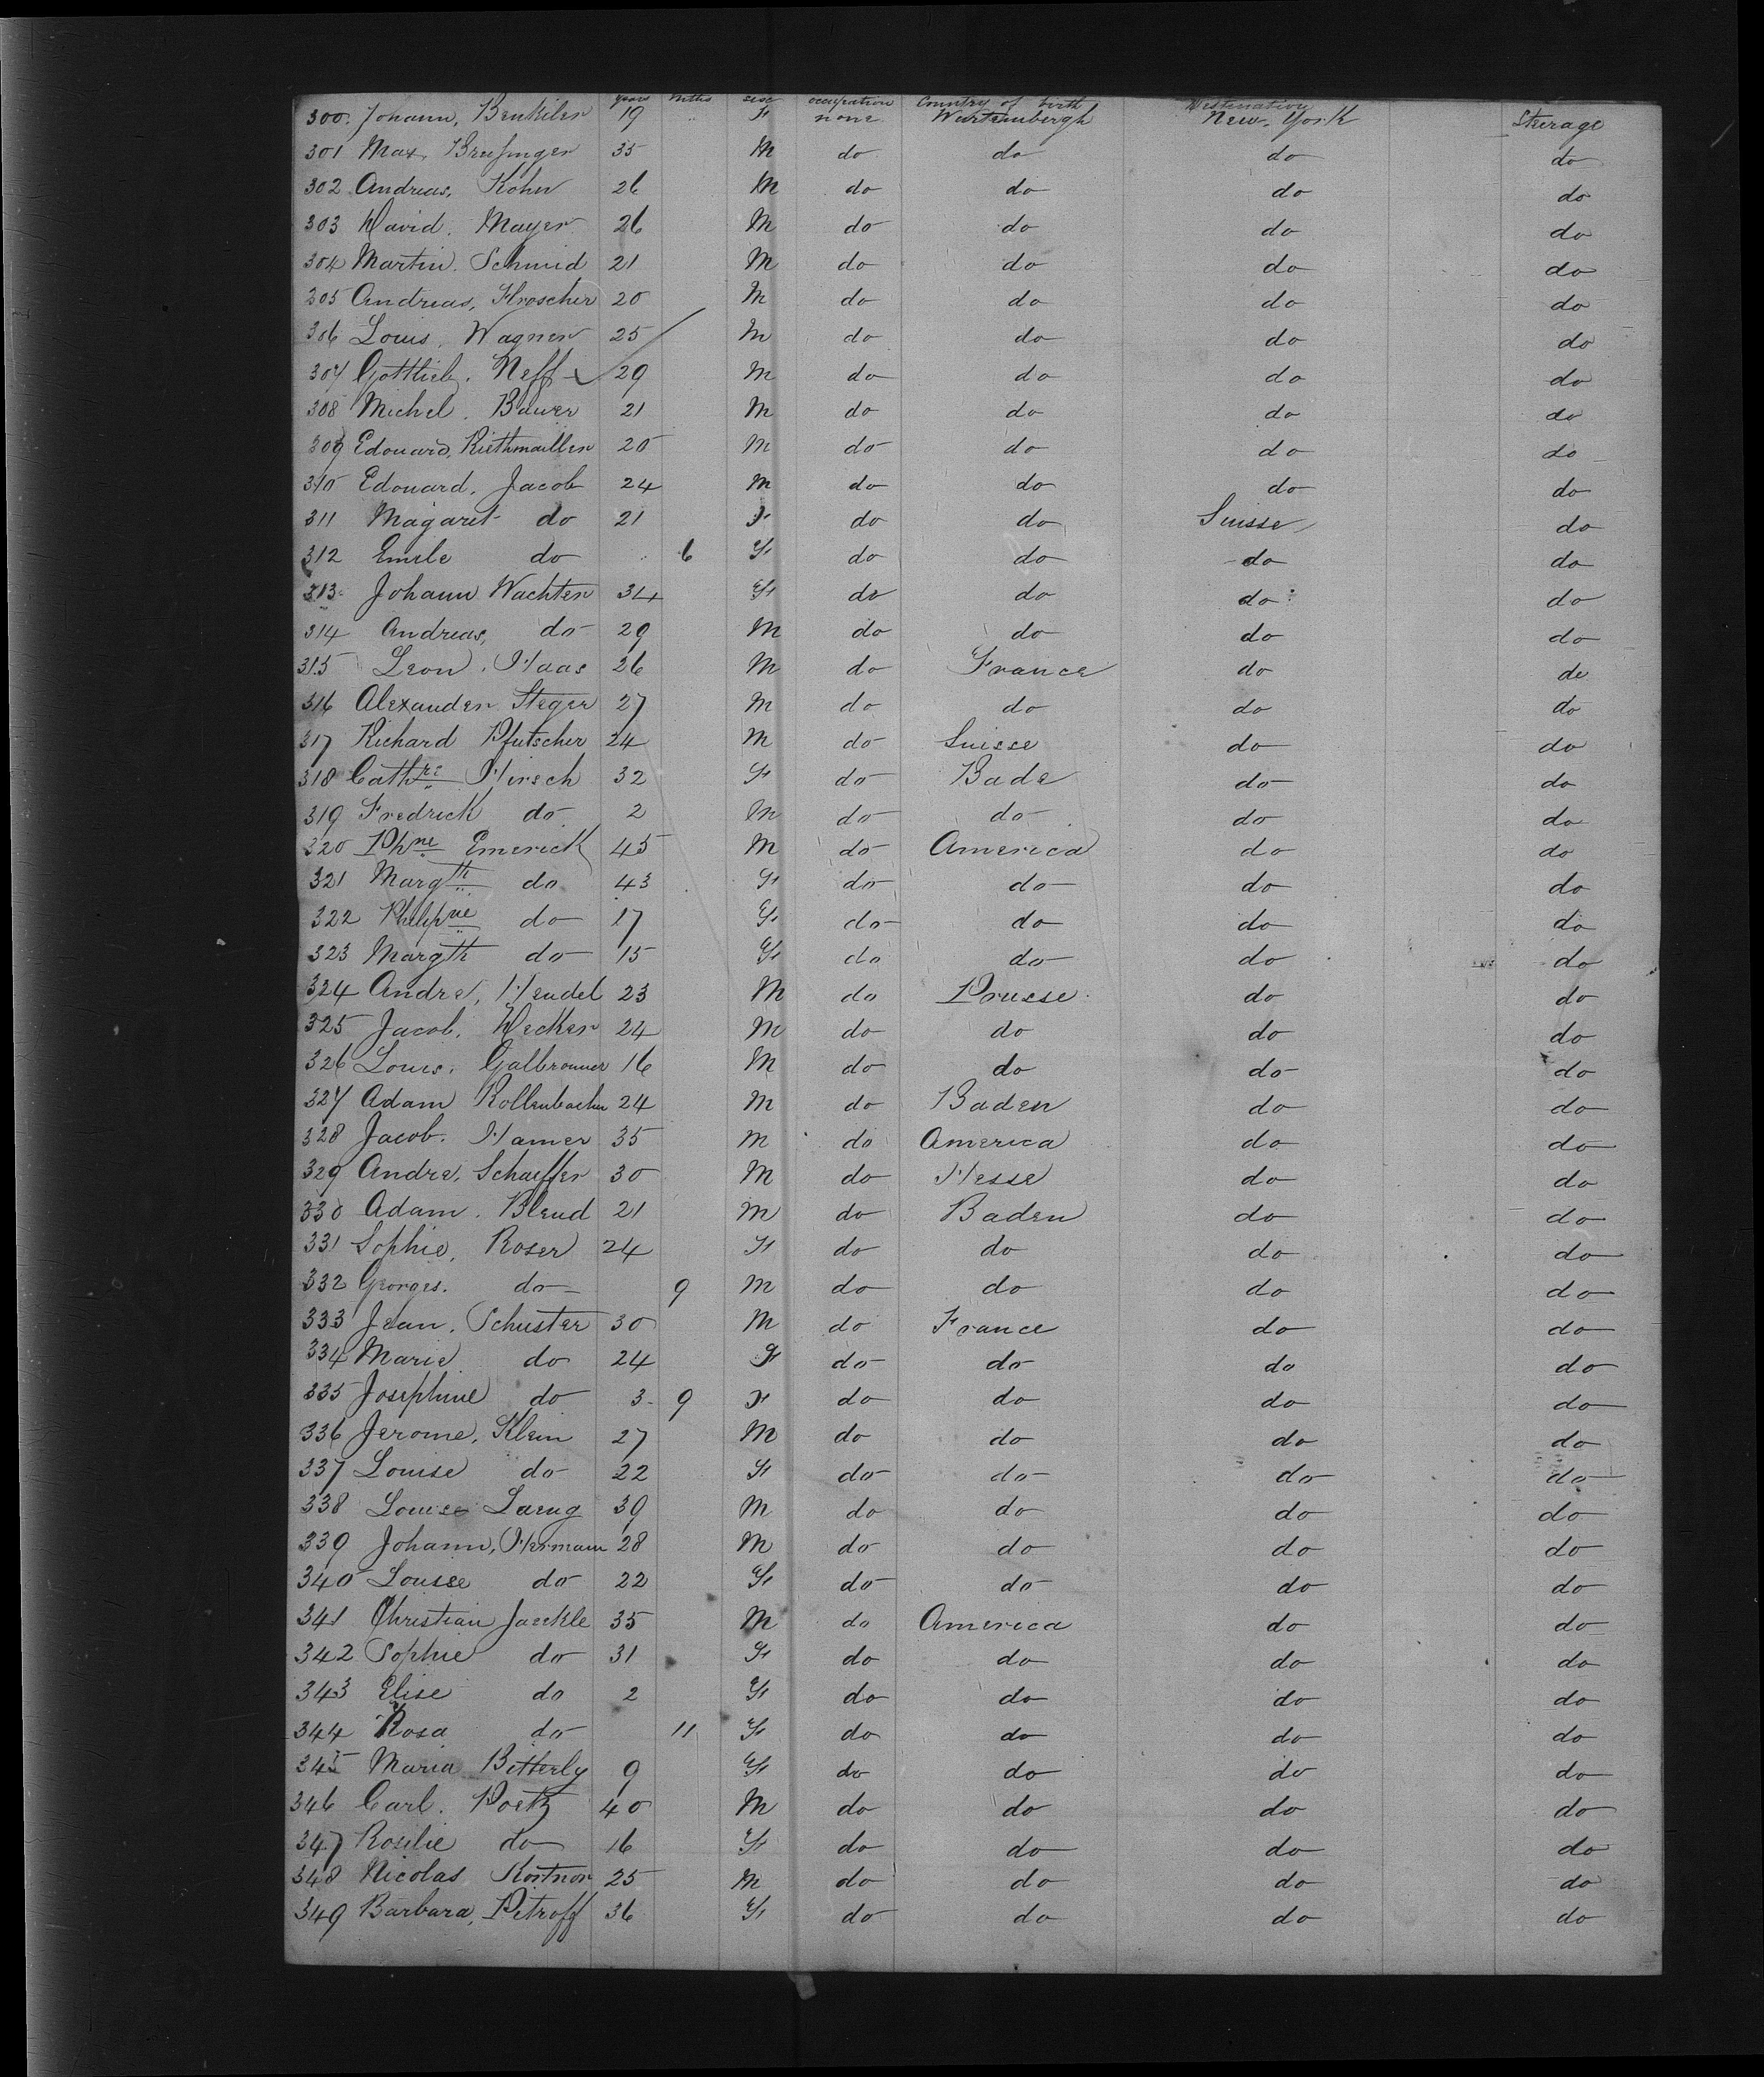 years mths sex occupation Country of birth Destination
300. Johann, Benkiler 19 F none Wurtembergh New. York Sterage
301 Max, Breisinger 35 M do do do do
302 Andreas, Kohn 26 M do do do do
303 David. Mayer 26 M do do do do
304 Martin. Schmid 21 M do do do do
305 Andreas, Hroscher 20 M do do do do
306 Louis. Wagner 25 M do do do do
307 Gottlieb. Neff 29 M do do do do
308 Michel. Bauer 21 M do do do do
309 Edouard, Riethmuller 20 M do do do do
310 Edouard, Jacob 24 M do do do do
311 Magaret do 21 F do do Suisse do
312 Emile do 6 F do do do do
313 Johann Wachter 34 F do do do do
314 Andreas, do 29 M do do do do
315 Leon. Haas 26 M do France do do
316 Alexander Steger 27 M do do do do
317 Richard Pfutscher 24 M do Suisse do do
318 Cathre Hirsch 32 F do Bade do do
319 Fredrick do 2 M do do do do
320 Phne Emerick 45 M do America do do
321 Margth do 43 F do do do do
322 Philipne do 17 F do do do do
323 Margth do 15 F do do do do
324 Andre, Hendel 23 M do Prusse do do
325 Jacob, Decker 24 M do do do do
326 Louis. Galbronner 16 M do do do do
327 Adam Rollenbacher 24 M do Baden do do
328 Jacob. Hamer 35 M do America do do
329 Andre, Schaeffer 30 M do Hesse do do
330 Adam. Blend 21 M do Baden do do
331 Sophie, Roser 24 F do do do do
332 Georges. do 9 M do do do do
333 Jean, Schuster 30 M do France do do
334 Marie do 24 F do do do do
335 Josephine do 3 9 F do do do do
336 Jerome, Klein 27 M do do do do
337 Louise do 22 F do do do do
338 Louise Laeng 39 M do do do do
339 Johann, Hermann 28 M do do do do
340 Louise do 22 F do do do do
341 Christian Jaeckle 35 M do America do do
342 Sophie do 31 F do do do do
343 Elise do 2 F do do do do
344 Rosa do 11 F do do do do
345 Maria Bitterly 9 F do do do do
346 Carl. Poetz 40 M do do do do
347 Rosilie do 16 F do do do do
348 Nicolas Kortnor 25 M do do do do
349 Barbara, Petroff 36 F do do do do